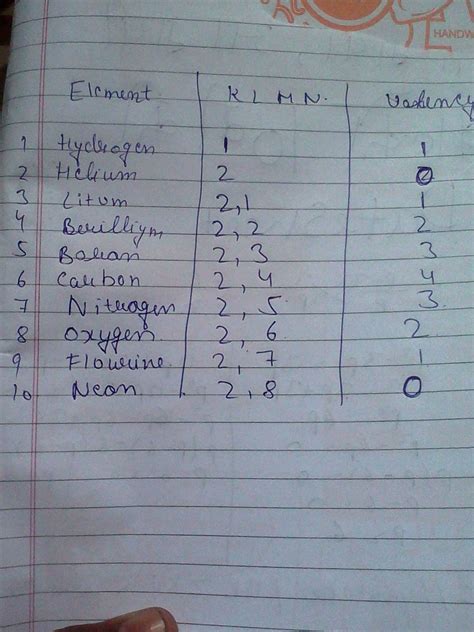 HANDW
Element K L M N. Valency
1 Hydrogen 1 1
2 Helium 2 0
3 Litum 2,1 1
4 Berilliym 2, 2 2
5 Bohan 2, 3 3
6 Carbon 2, 4 4
7 Nitrogen 2, 5 3.
8 Oxygen 2, 6 2
9 Flowrine. 2, 7 1
10 Neon 2, 8 0